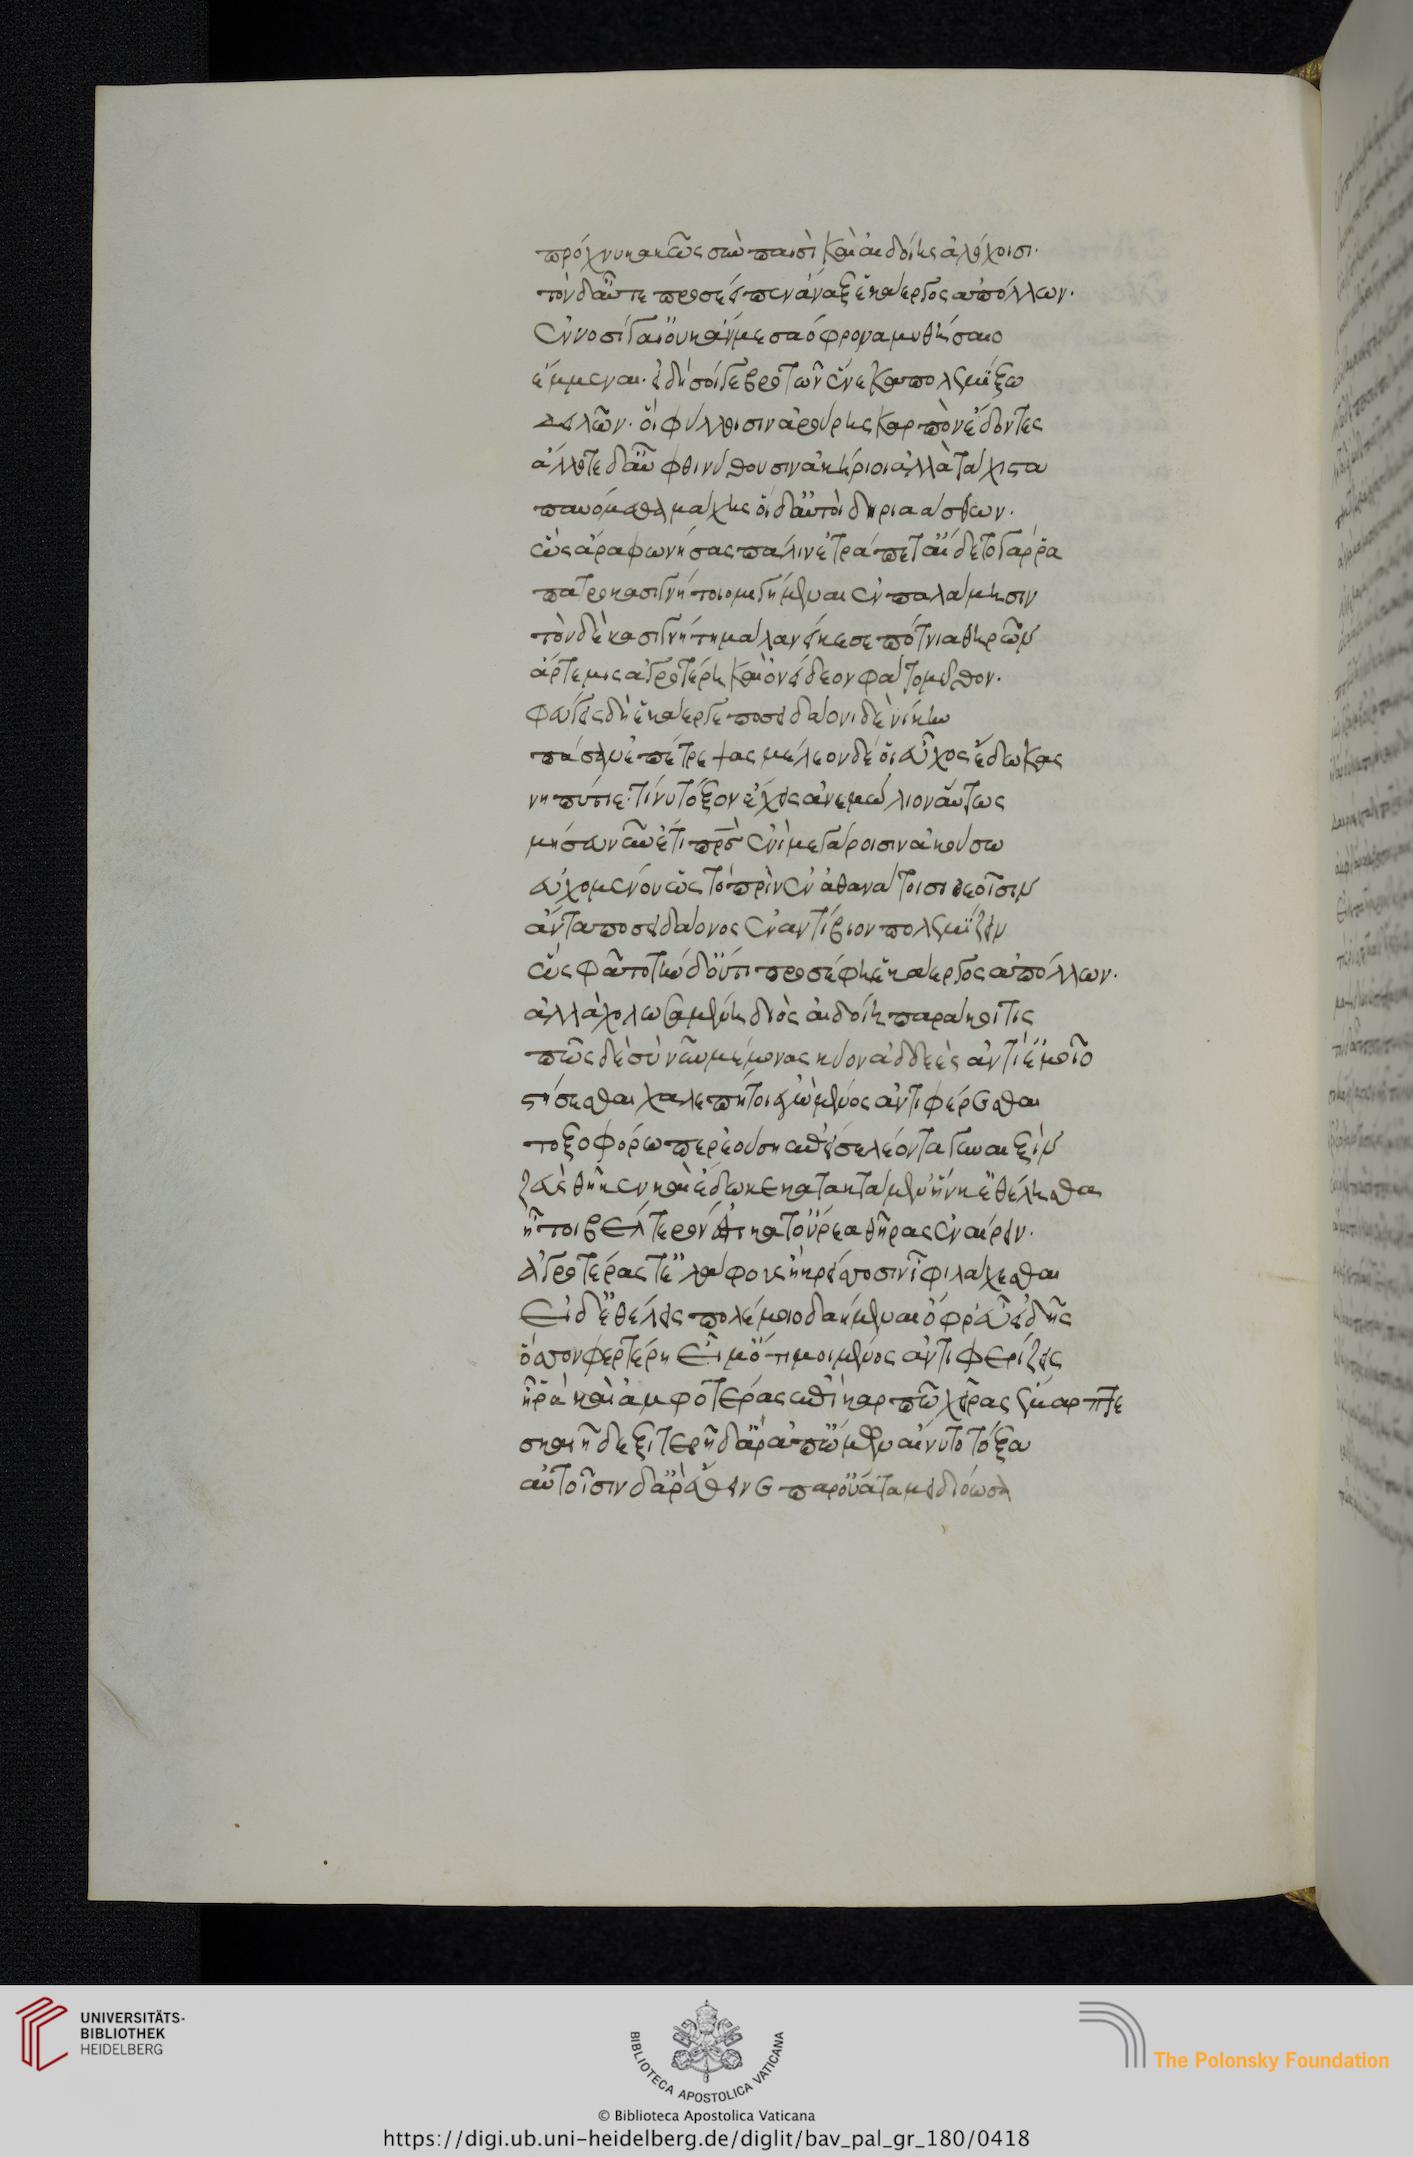 πρόχνυ κακῶς σὺν παισὶ καὶ αἰδοίης ἀλόχοισι.
τὸν δ' αὖτε προσέειπεν ἄναξ ἑκάεργος ἀπόλλων.
ἐννοσίγαι' οὐκ ἄν με σαόφρονα μυθήσαιο
ἔμμεναι. εἰ δή σοί γε βροτῶν ἕνεκα πολεμίξω
δειλῶν. οἳ φύλλοισιν ἀρούρης καρπὸν ἔδοντες
ἄλλοτε δ' αὖ φθινύθουσιν ἀκήριοι ἀλλὰ τάχιστα
παυόμεσθα μάχης οἱ δ' αὐτοὶ δηριαάσθων.
ὣς ἄρα φωνήσας πάλιν ἐτράπετ' αἴδετο γάρ ῥα
πατροκασιγνήτοιο μιγήμεναι ἐν παλάμησιν
τὸν δὲ κασιγνήτη μάλα νείκεσε πότνια θηρῶν
ἄρτεμις ἀγροτέρη καὶ ὀνείδειον φάτο μῦθον.
φεύγεις δὴ ἑκάεργε ποσειδάονι δὲ νίκην
πᾶσαν ἐπέτρεψας μέλεον δέ οἱ εὖχος ἔδωκας
νηπύτιε. τί νυ τόξον ἔχεις ἀνεμώλιον αὔτως
μή σευ νῦν ἔτι πρὸς ἐνὶ μεγάροισιν ἀκούσω
εὐχομένου ὡς τὸ πρὶν ἐν ἀθανάτοισι θεοῖσιν
ἄντα ποσειδάονος ἐναντίβιον πολεμίζειν
ὣς φάτο τὴν δ' οὔτι προσέφη ἑκάεργος ἀπόλλων.
ἀλλὰ χολωσαμένη διὸς αἰδοίη παράκοιτις
πῶς δὲ σὺ νῦν μέμονας κύον ἀδδεὲς ἀντί' ἐμοῖο
στήσεσθαι χαλεπή τοι ἐγὼ μένος ἀντιφέρεσθαι
τοξοφόρω περ ἐούση ἐπεί σε λέοντα γυναιξὶν
ζεὺς θῆκεν καὶ ἔδωκε κατακτάμεν ἥν κ' ἐθέλησθα
ἤτοι βέλτερόν ἐστι κατ' οὔρεα θῆρας ἐναίρειν.
ἀγροτέρας τ' ἐλάφους ἢ κρείσσοσιν ἶφι μάχεσθαι
εἰ δ' ἐθέλεις πολέμοιο δαήμεναι ὄφρ' εὖ εἰδῆς
ὅσσον φερτέρη εἴμ' ὅτι μοι μένος ἀντιφερίζεις
ἦ ῥα καὶ ἀμφοτέρας ἐπὶ καρπῶ χεῖρας ἔμαρπτε
σκαιῆ δεξιτερῆ δ' ἄρ' ἀπ' ὤμων αἴνυτο τόξα
αὐτοῖσιν δ' ἄρ' ἔθεινε παρ' οὔατα μειδιόωσα
UNIVERSITÄTS-
BIBLIOTHEK
HEIDELBERG
BIBLIOTECA APOSTOLICA VATICANA
The Polonsky Foundation
© Biblioteca Apostolica Vaticana
https://digi.ub.uni-heidelberg.de/diglit/bav_pal_gr_180/0418